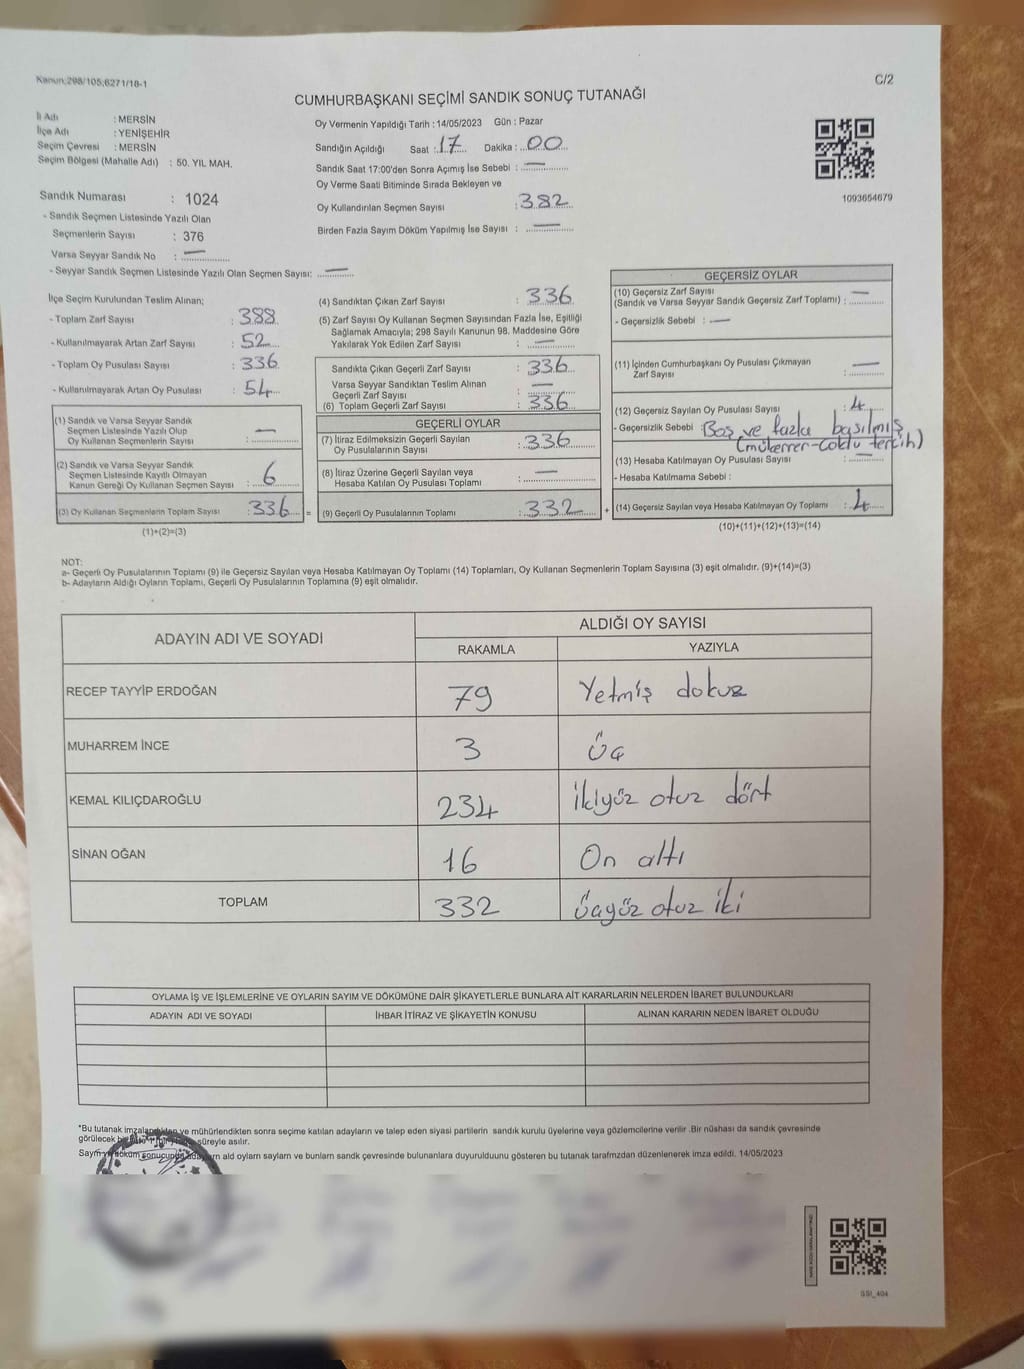 Kanun:298/105;6271/18-1
C/2
CUMHURBAŞKANI SEÇİMİ SANDIK SONUÇ TUTANAĞI
İl Adı : MERSİN
İlçe Adı : YENİŞEHİR
Seçim Çevresi : MERSİN
Seçim Bölgesi (Mahalle Adı) : 50. YIL MAH.
Oy Vermenin Yapıldığı Tarih : 14/05/2023 Gün : Pazar
Sandığın Açıldığı Saat : 17 Dakika : 00
Sandık Saat 17:00'den Sonra Açımış İse Sebebi : —
Oy Verme Saati Bitiminde Sırada Bekleyen ve
Oy Kullandırılan Seçmen Sayısı : 382
Birden Fazla Sayım Döküm Yapılmış İse Sayısı : —
1093654679
Sandık Numarası : 1024
- Sandık Seçmen Listesinde Yazılı Olan
Seçmenlerin Sayısı : 376
Varsa Seyyar Sandık No : —
- Seyyar Sandık Seçmen Listesinde Yazılı Olan Seçmen Sayısı: —
İlçe Seçim Kurulundan Teslim Alınan;
- Toplam Zarf Sayısı : 388
- Kullanılmayarak Artan Zarf Sayısı : 52
- Toplam Oy Pusulası Sayısı : 336
- Kullanılmayarak Artan Oy Pusulası : 54
(1) Sandık ve Varsa Seyyar Sandık
Seçmen Listesinde Yazılı Olup
Oy Kullanan Seçmenlerin Sayısı : —
(2) Sandık ve Varsa Seyyar Sandık
Seçmen Listesinde Kayıtlı Olmayan
Kanun Gereği Oy Kullanan Seçmen Sayısı : 6
(3) Oy Kullanan Seçmenlerin Toplam Sayısı : 336 =
(1)+(2)=(3)
(4) Sandıktan Çıkan Zarf Sayısı : 336
(5) Zarf Sayısı Oy Kullanan Seçmen Sayısından Fazla İse, Eşitliği
Sağlamak Amacıyla; 298 Sayılı Kanunun 98. Maddesine Göre
Yakılarak Yok Edilen Zarf Sayısı : —
Sandıkta Çıkan Geçerli Zarf Sayısı : 336
Varsa Seyyar Sandıktan Teslim Alınan
Geçerli Zarf Sayısı : —
(6) Toplam Geçerli Zarf Sayısı : 336
GEÇERLİ OYLAR
(7) İtiraz Edilmeksizin Geçerli Sayılan
Oy Pusulasının Sayısı : 336
(8) İtiraz Üzerine Geçerli Sayılan veya
Hesaba Katılan Oy Pusulası Toplamı : —
(9) Geçerli Oy Pusulalarının Toplamı : 332 +
GEÇERSİZ OYLAR
(10) Geçersiz Zarf Sayısı
(Sandık ve Varsa Seyyar Sandık Geçersiz Zarf Toplamı) : —
- Geçersizlik Sebebi : —
(11) İçinden Cumhurbaşkanı Oy Pusulası Çıkmayan
Zarf Sayısı : —
(12) Geçersiz Sayılan Oy Pusulası Sayısı : 4
- Geçersizlik Sebebi Boş ve fazla basılmış
(mükerrer-çoklu tercih)
(13) Hesaba Katılmayan Oy Pusulası Sayısı : —
- Hesaba Katılmama Sebebi :
(14) Geçersiz Sayılan veya Hesaba Katılmayan Oy Toplamı : 4
(10)+(11)+(12)+(13)=(14)
NOT:
a- Geçerli Oy Pusulalarının Toplamı (9) ile Geçersiz Sayılan veya Hesaba Katılmayan Oy Toplamı (14) Toplamları, Oy Kullanan Seçmenlerin Toplam Sayısına (3) eşit olmalıdır. (9)+(14)=(3)
b- Adayların Aldığı Oyların Toplamı, Geçerli Oy Pusulalarının Toplamına (9) eşit olmalıdır.
ADAYIN ADI VE SOYADI ALDIĞI OY SAYISI
RAKAMLA YAZIYLA
RECEP TAYYİP ERDOĞAN 79 Yetmiş dokuz
MUHARREM İNCE 3 üç
KEMAL KILIÇDAROĞLU 234 ikiyüz otuz dört
SİNAN OĞAN 16 On altı
TOPLAM 332 üçyüz otuz iki
OYLAMA İŞ VE İŞLEMLERİNE VE OYLARIN SAYIM VE DÖKÜMÜNE DAİR ŞİKAYETLERLE BUNLARA AİT KARARLARIN NELERDEN İBARET BULUNDUKLARI
ADAYIN ADI VE SOYADI İHBAR İTİRAZ VE ŞİKAYETİN KONUSU ALINAN KARARIN NEDEN İBARET OLDUĞU
*Bu tutanak imzalandıktan ve mühürlendikten sonra seçime katılan adayların ve talep eden siyasi partilerin sandık kurulu üyelerine veya gözlemcilerine verilir .Bir nüshası da sandık çevresinde
görülecek bir süreyle asılır.
Sayım döküm sonucunda ald oyların sayların ve bunların sandk çevresinde bulunanlara duyurulduunu gösteren bu tutanak tarafmzdan düzenlenerek imza edildi. 14/05/2023
GSI_404